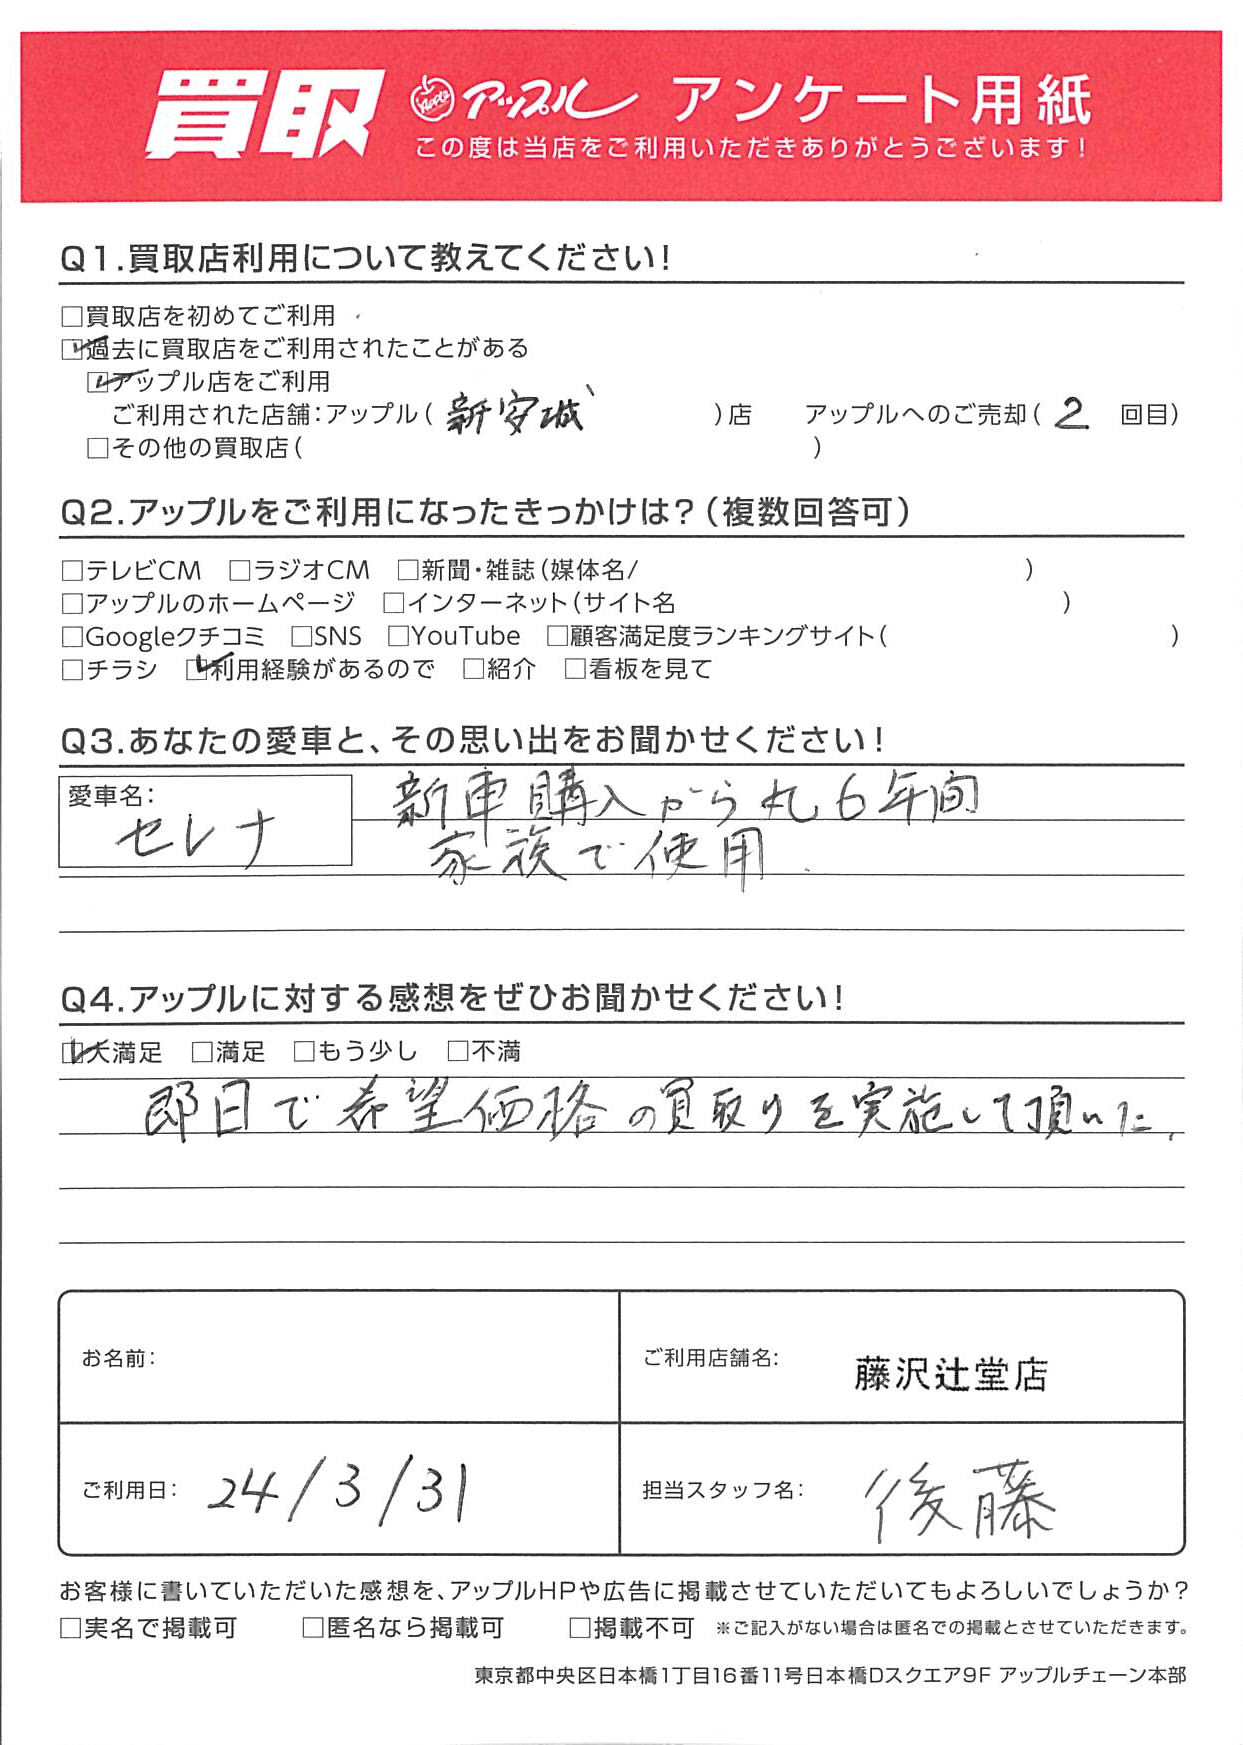 買取 Apple アップル アンケート用紙
この度は当店をご利用いただきありがとうございます!
Q1.買取店利用について教えてください!
□買取店を初めてご利用
☑過去に買取店をご利用されたことがある
☑アップル店をご利用
ご利用された店舗:アップル( 新安城 )店 アップルへのご売却( 2 回目)
□その他の買取店( )
Q2.アップルをご利用になったきっかけは?(複数回答可)
□テレビCM □ラジオCM □新聞・雑誌(媒体名/ )
□アップルのホームページ □インターネット(サイト名 )
□Googleクチコミ □SNS □YouTube □顧客満足度ランキングサイト( )
□チラシ ☑利用経験があるので □紹介 □看板を見て
Q3.あなたの愛車と、その思い出をお聞かせください!
愛車名: セレナ
新車購入から丸6年間
家族で使用.
Q4.アップルに対する感想をぜひお聞かせください!
☑大満足 □満足 □もう少し □不満
即日で希望価格の買取りを実施して頂いた.
お名前:
ご利用店舗名: 藤沢辻堂店
ご利用日: 24/3/31
担当スタッフ名: 後藤
お客様に書いていただいた感想を、アップルHPや広告に掲載させていただいてもよろしいでしょうか?
□実名で掲載可 □匿名なら掲載可 □掲載不可 ※ご記入がない場合は匿名での掲載とさせていただきます。
東京都中央区日本橋1丁目16番11号日本橋Dスクエア9F アップルチェーン本部